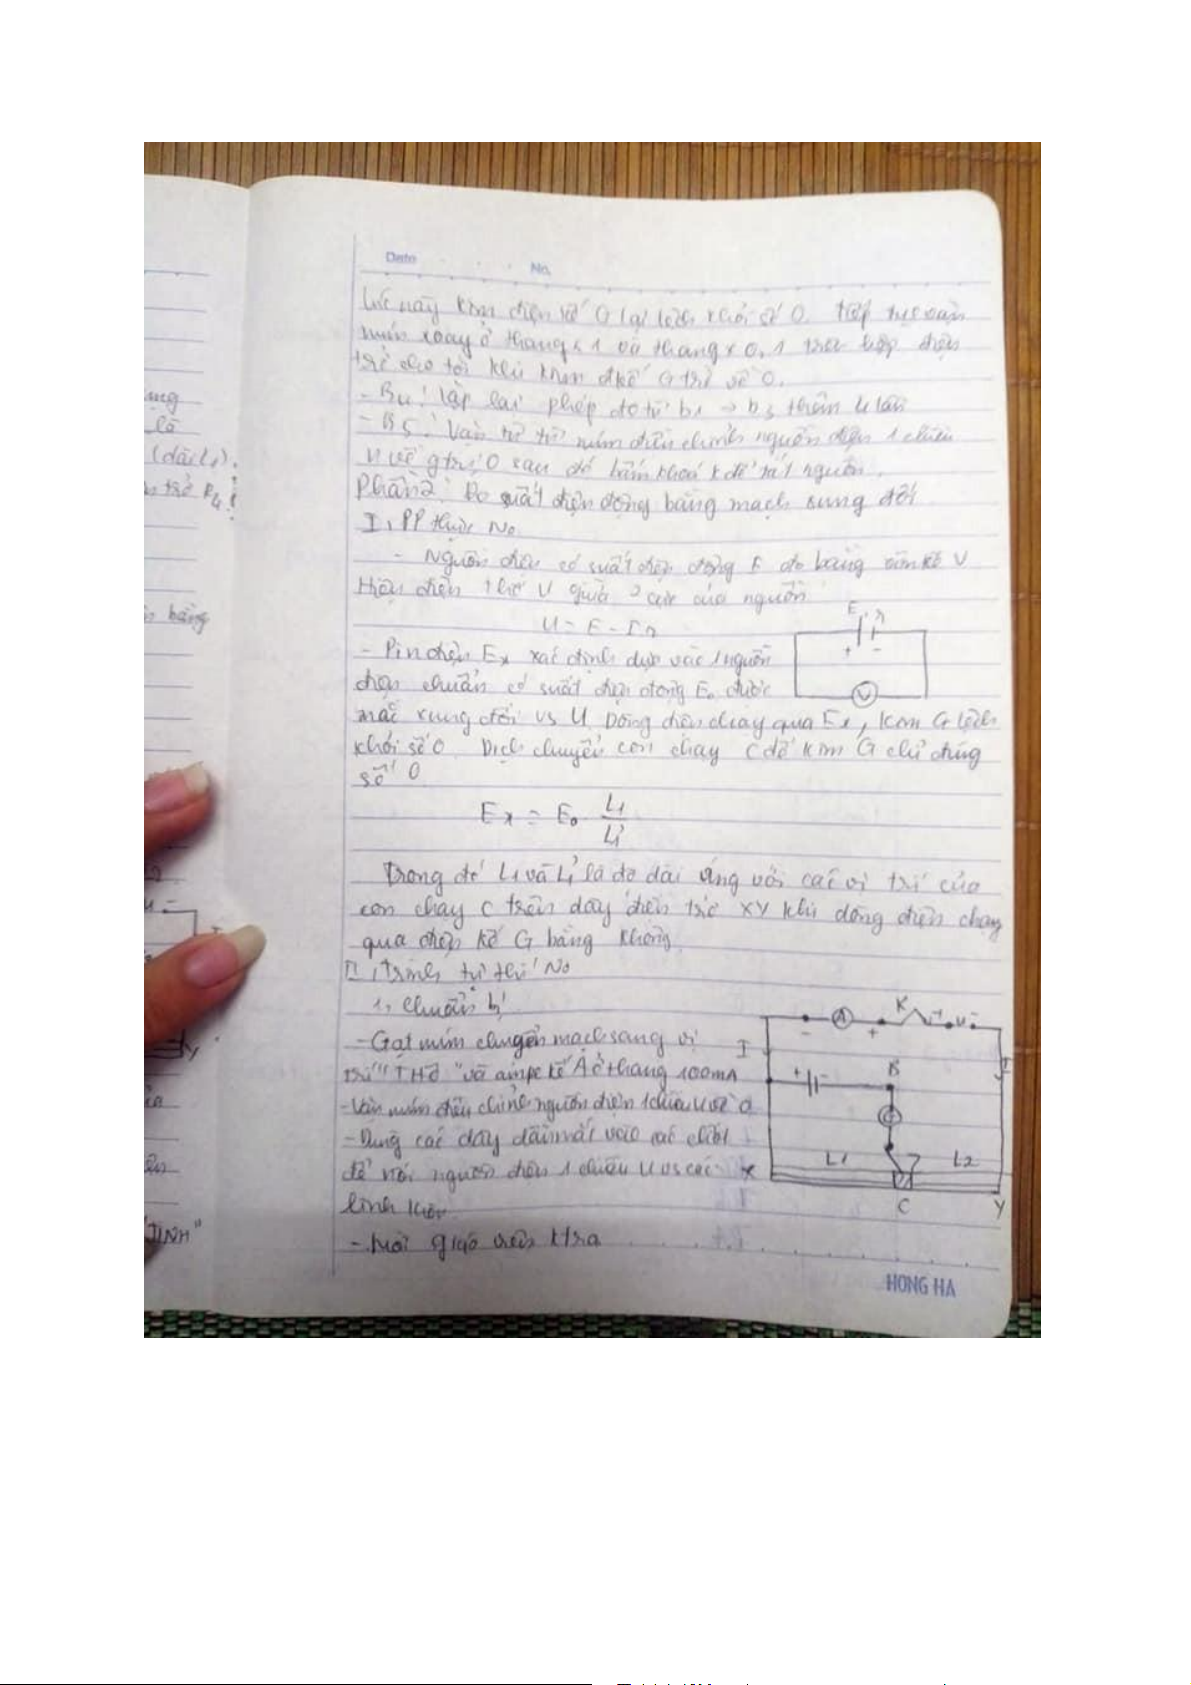 Date No.
Lúc này kim điện kế G lại lệch khỏi số 0. Tiếp tục vặn
núm xoay ở thang x 1 và thang x 0,1 trên hộp điện
trở cho tới khi kim đkế G trở về 0.
- B4: lặp lại phép đo từ b1 → b3 thêm 4 lần
- B5: Vặn từ từ núm điều chỉnh nguồn điện 1 chiều
U về gtrị 0 sau đó bấm khoá K để tắt nguồn.
Phần 2: Đo suất điện động bằng mạch xung đối
I, PP thực No
- Nguồn điện có suất điện động E đo bằng vôn kế V
Hiệu điện thế V giữa 2 cực của nguồn
U = E - Ir
E, r
+ -
V
- Pin điện Ex xác định dựa vào 1 nguồn
điện chuẩn có suất điện động E0 được
mắc xung đối vs U. Dòng điện chạy qua Ex, kim G lệch
khỏi số 0. Dịch chuyển con chạy C để kim G chỉ đúng
số 0
Ex = E0 L1/L1'
Trong đó L1 và L1' là độ dài ứng với các vị trí của
con chạy C trên dây điện trở XY khi dòng điện chạy
qua điện kế G bằng không.
II, Trình tự thí No
1, Chuẩn bị
- Gạt núm chuyển mạch sang vị
trí "THĐ" và ampe kế A ở thang 100mA
- Vặn núm điều chỉnh nguồn điện 1 chiều U về 0
- Dùng các dây dẫn mắc vào các chốt
để nối nguồn điện 1 chiều U vs các
linh kiện.
- Mời giáo viên ktra
A K + U -
- +
I I
+ - B
G
L1 L2
X C Y
HONG HA
ung
là
(dâu L1).
n trở R4
bằng
U -
Y
"TINH"